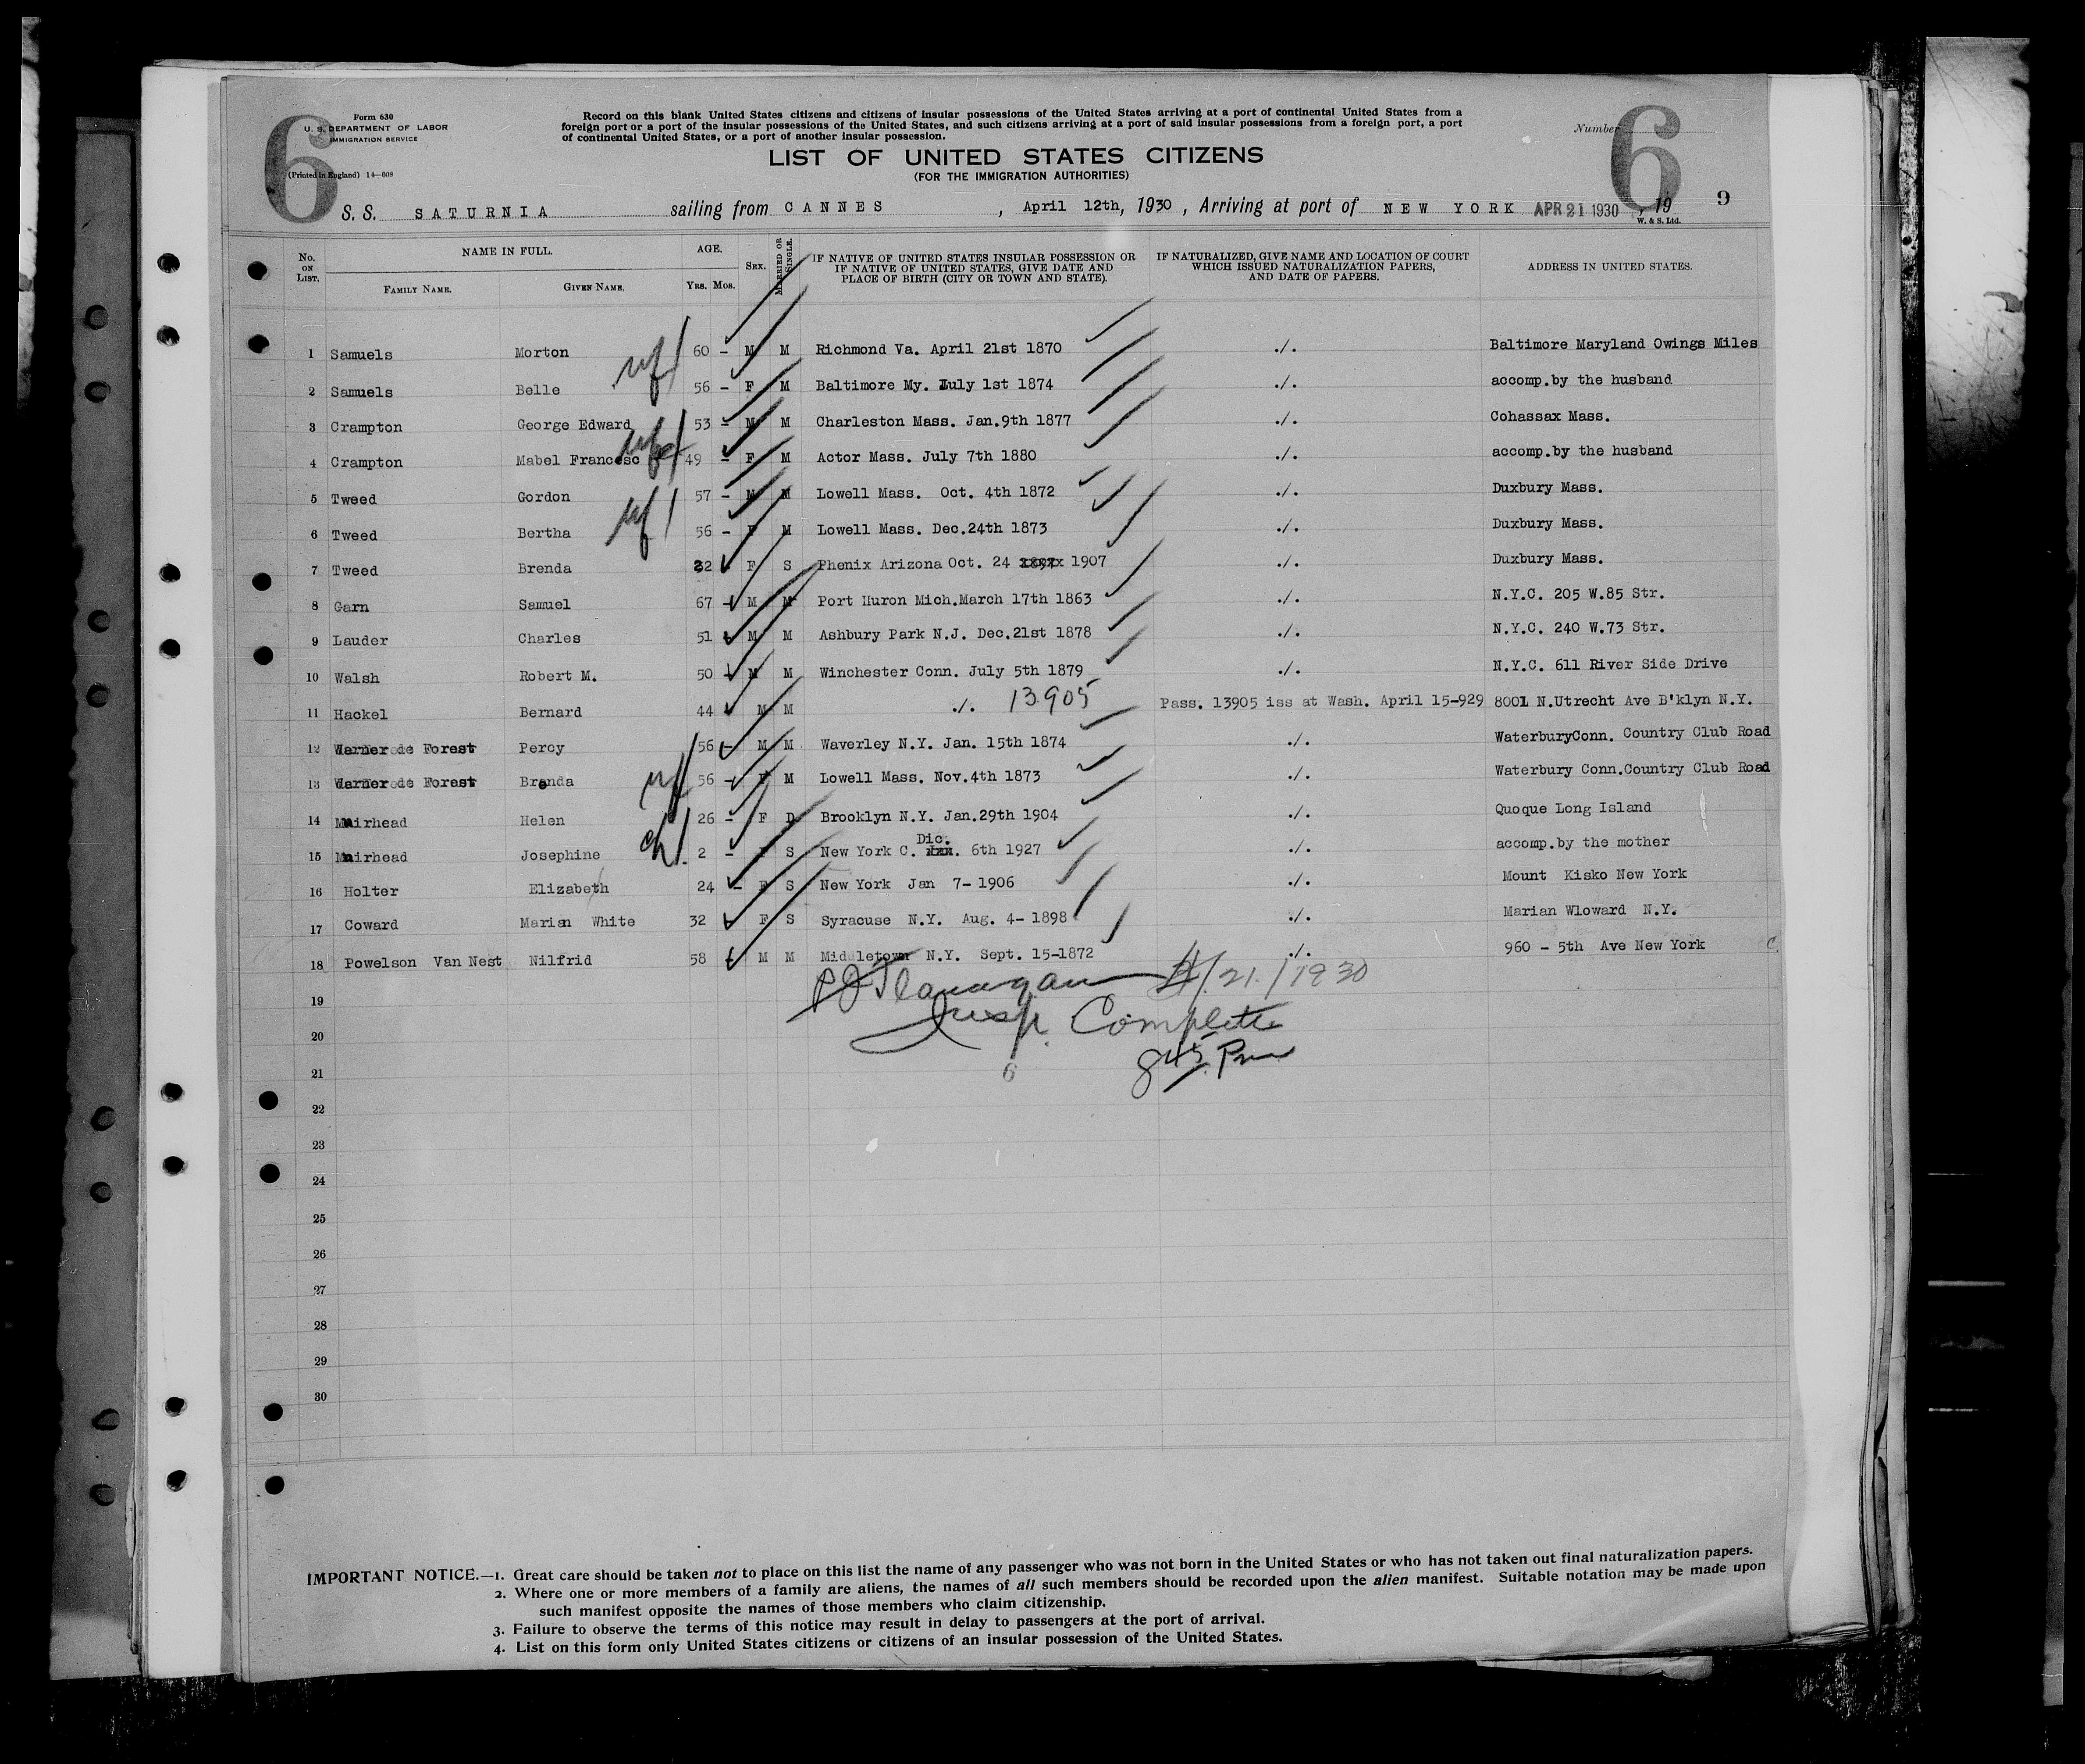 6
Form 630
U. S. DEPARTMENT OF LABOR
IMMIGRATION SERVICE
(Printed in England) 14—608
Record on this blank United States citizens and citizens of insular possessions of the United States arriving at a port of continental United States from a
foreign port or a port of the insular possessions of the United States, and such citizens arriving at a port of said insular possessions from a foreign port, a port
of continental United States, or a port of another insular possession.
LIST OF UNITED STATES CITIZENS
(FOR THE IMMIGRATION AUTHORITIES)
Number 6
9
S. S. SATURNIA sailing from CANNES , April 12th, 1930 , Arriving at port of NEW YORK APR 21 1930 , 19
W. & S. Ltd.
No. ON LIST. NAME IN FULL. FAMILY NAME. GIVEN NAME. AGE. YRS. MOS. SEX. MARRIED OR SINGLE. IF NATIVE OF UNITED STATES INSULAR POSSESSION OR IF NATIVE OF UNITED STATES, GIVE DATE AND PLACE OF BIRTH (CITY OR TOWN AND STATE). IF NATURALIZED, GIVE NAME AND LOCATION OF COURT WHICH ISSUED NATURALIZATION PAPERS, AND DATE OF PAPERS. ADDRESS IN UNITED STATES.
1 Samuels Morton 60 – M M Richmond Va. April 21st 1870 ./. Baltimore Maryland Owings Miles
2 Samuels Belle wf 56 – F M Baltimore My. July 1st 1874 ./. accomp.by the husband
3 Crampton George Edward 53 – M M Charleston Mass. Jan.9th 1877 ./. Cohassax Mass.
4 Crampton Mabel Francesc wf 49 – F M Actor Mass. July 7th 1880 ./. accomp.by the husband
5 Tweed Gordon 57 – M M Lowell Mass. Oct. 4th 1872 ./. Duxbury Mass.
6 Tweed Bertha wf 56 – F M Lowell Mass. Dec.24th 1873 ./. Duxbury Mass.
7 Tweed Brenda 22 F S Phenix Arizona Oct. 24 1907 ./. Duxbury Mass.
8 Garn Samuel 67 – M M Port Huron Mich.March 17th 1863 ./. N.Y.C. 205 W.85 Str.
9 Lauder Charles 51 M M Ashbury Park N.J. Dec.21st 1878 ./. N.Y.C. 240 W.73 Str.
10 Walsh Robert M. 50 – M M Winchester Conn. July 5th 1879 ./. N.Y.C. 611 River Side Drive
11 Hackel Bernard 44 M M ./. 13905 Pass. 13905 iss at Wash. April 15-929 8001 N.Utrecht Ave B'klyn N.Y.
12 de Forest Percy 56 – M M Waverley N.Y. Jan. 15th 1874 ./. WaterburyConn. Country Club Road
13 de Forest Brenda wf 56 – F M Lowell Mass. Nov.4th 1873 ./. Waterbury Conn.Country Club Road
14 Muirhead Helen 26 – F D Brooklyn N.Y. Jan.29th 1904 ./. Quoque Long Island
15 Muirhead Josephine ch 2 – F S New York C. Dic. 6th 1927 ./. accomp.by the mother
16 Holter Elizabeth 24 – F S New York Jan 7– 1906 ./. Mount Kisko New York
17 Coward Marian White 32 – F S Syracuse N.Y. Aug. 4– 1898 ./. Marian Wloward N.Y.
18 Powelson Van Nest Nilfrid 58 – M M Middletown N.Y. Sept. 15-1872 ./. 960 – 5th Ave New York
19
P J Flanagan 4/21/1930
20
Insp. Complette
21
6 845 Pm
22
23
24
25
26
27
28
29
30
IMPORTANT NOTICE.—1. Great care should be taken not to place on this list the name of any passenger who was not born in the United States or who has not taken out final naturalization papers.
2. Where one or more members of a family are aliens, the names of all such members should be recorded upon the alien manifest. Suitable notation may be made upon
such manifest opposite the names of those members who claim citizenship.
3. Failure to observe the terms of this notice may result in delay to passengers at the port of arrival.
4. List on this form only United States citizens or citizens of an insular possession of the United States.